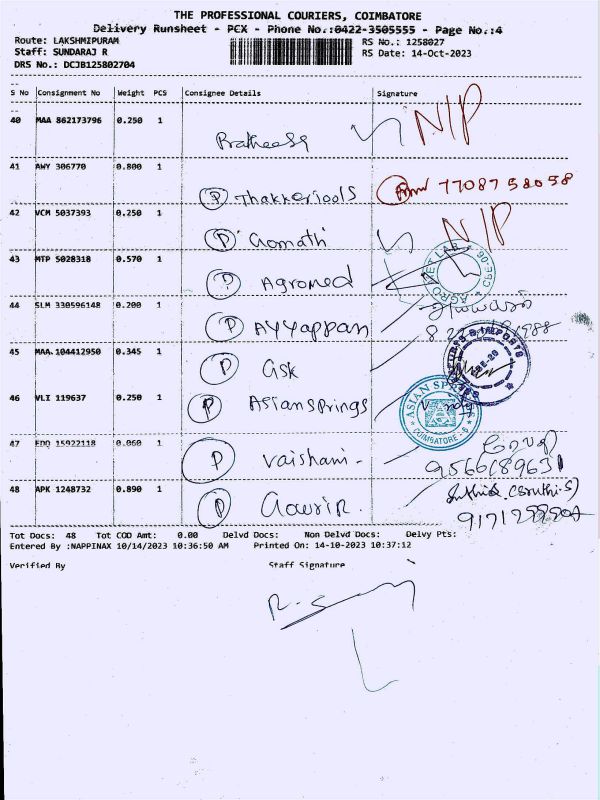 THE PROFESSIONAL COURIERS, COIMBATORE
Delivery Runsheet - PCX - Phone No.:0422-3505555 - Page No.:4
Route: LAKSHMIPURAM RS No.: 1258027
Staff: SUNDARAJ R RS Date: 14-Oct-2023
DRS No.: DCJB125802704
S No Consignment No Weight PCS Consignee Details Signature
40 MAA 862173796 0.250 1 N/P
Pratheesh
41 AWY 306770 0.800 1
P Thakkertools 77087 58058
42 VCM 5037393 0.250 1 N/P
P Gomathi
43 MTP 5028318 0.570 1
P Agromed
44 SLM 330596148 0.200 1
P Ayyappan
45 MAA 104412950 0.345 1
P Gsk
46 VLI 119637 0.250 1
P Asiansprings ASIAN SP COIMBATORE - 6
47 EDQ 15922118 0.060 1
P Vaishani - 9566189631
48 APK 1248732 0.890 1 (Sruthi.S)
P Gowri R.
Tot Docs: 48 Tot COD Amt: 0.00 Delvd Docs: Non Delvd Docs: Delvy Pts:
Entered By :NAPPINAX 10/14/2023 10:36:50 AM Printed On: 14-10-2023 10:37:12
Verified By Staff Signature